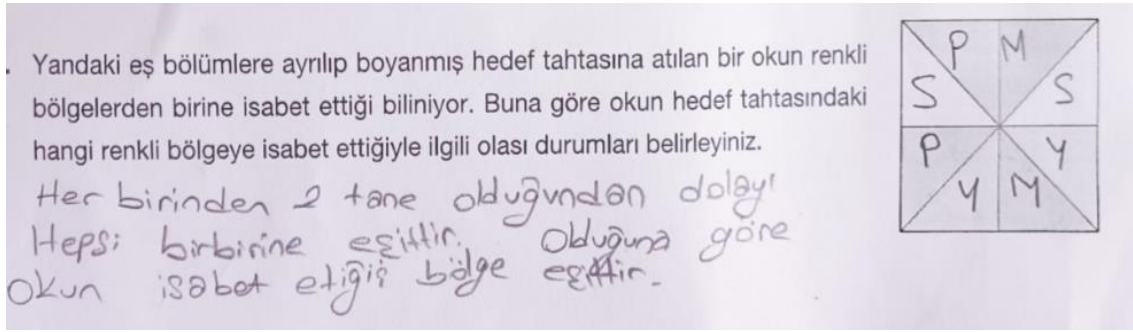 Yandaki eş bölümlere ayrılıp boyanmış hedef tahtasına atılan bir okun renkli
bölgelerden birine isabet ettiği biliniyor. Buna göre okun hedef tahtasındaki
hangi renkli bölgeye isabet ettiğiyle ilgili olası durumları belirleyiniz.
Her birinden 2 tane olduğundan dolayı
Hepsi birbirine eşittir. Olduğuna göre
Okun isabet etiğiş bölge eşittir.
P M
S S
P Y
Y M